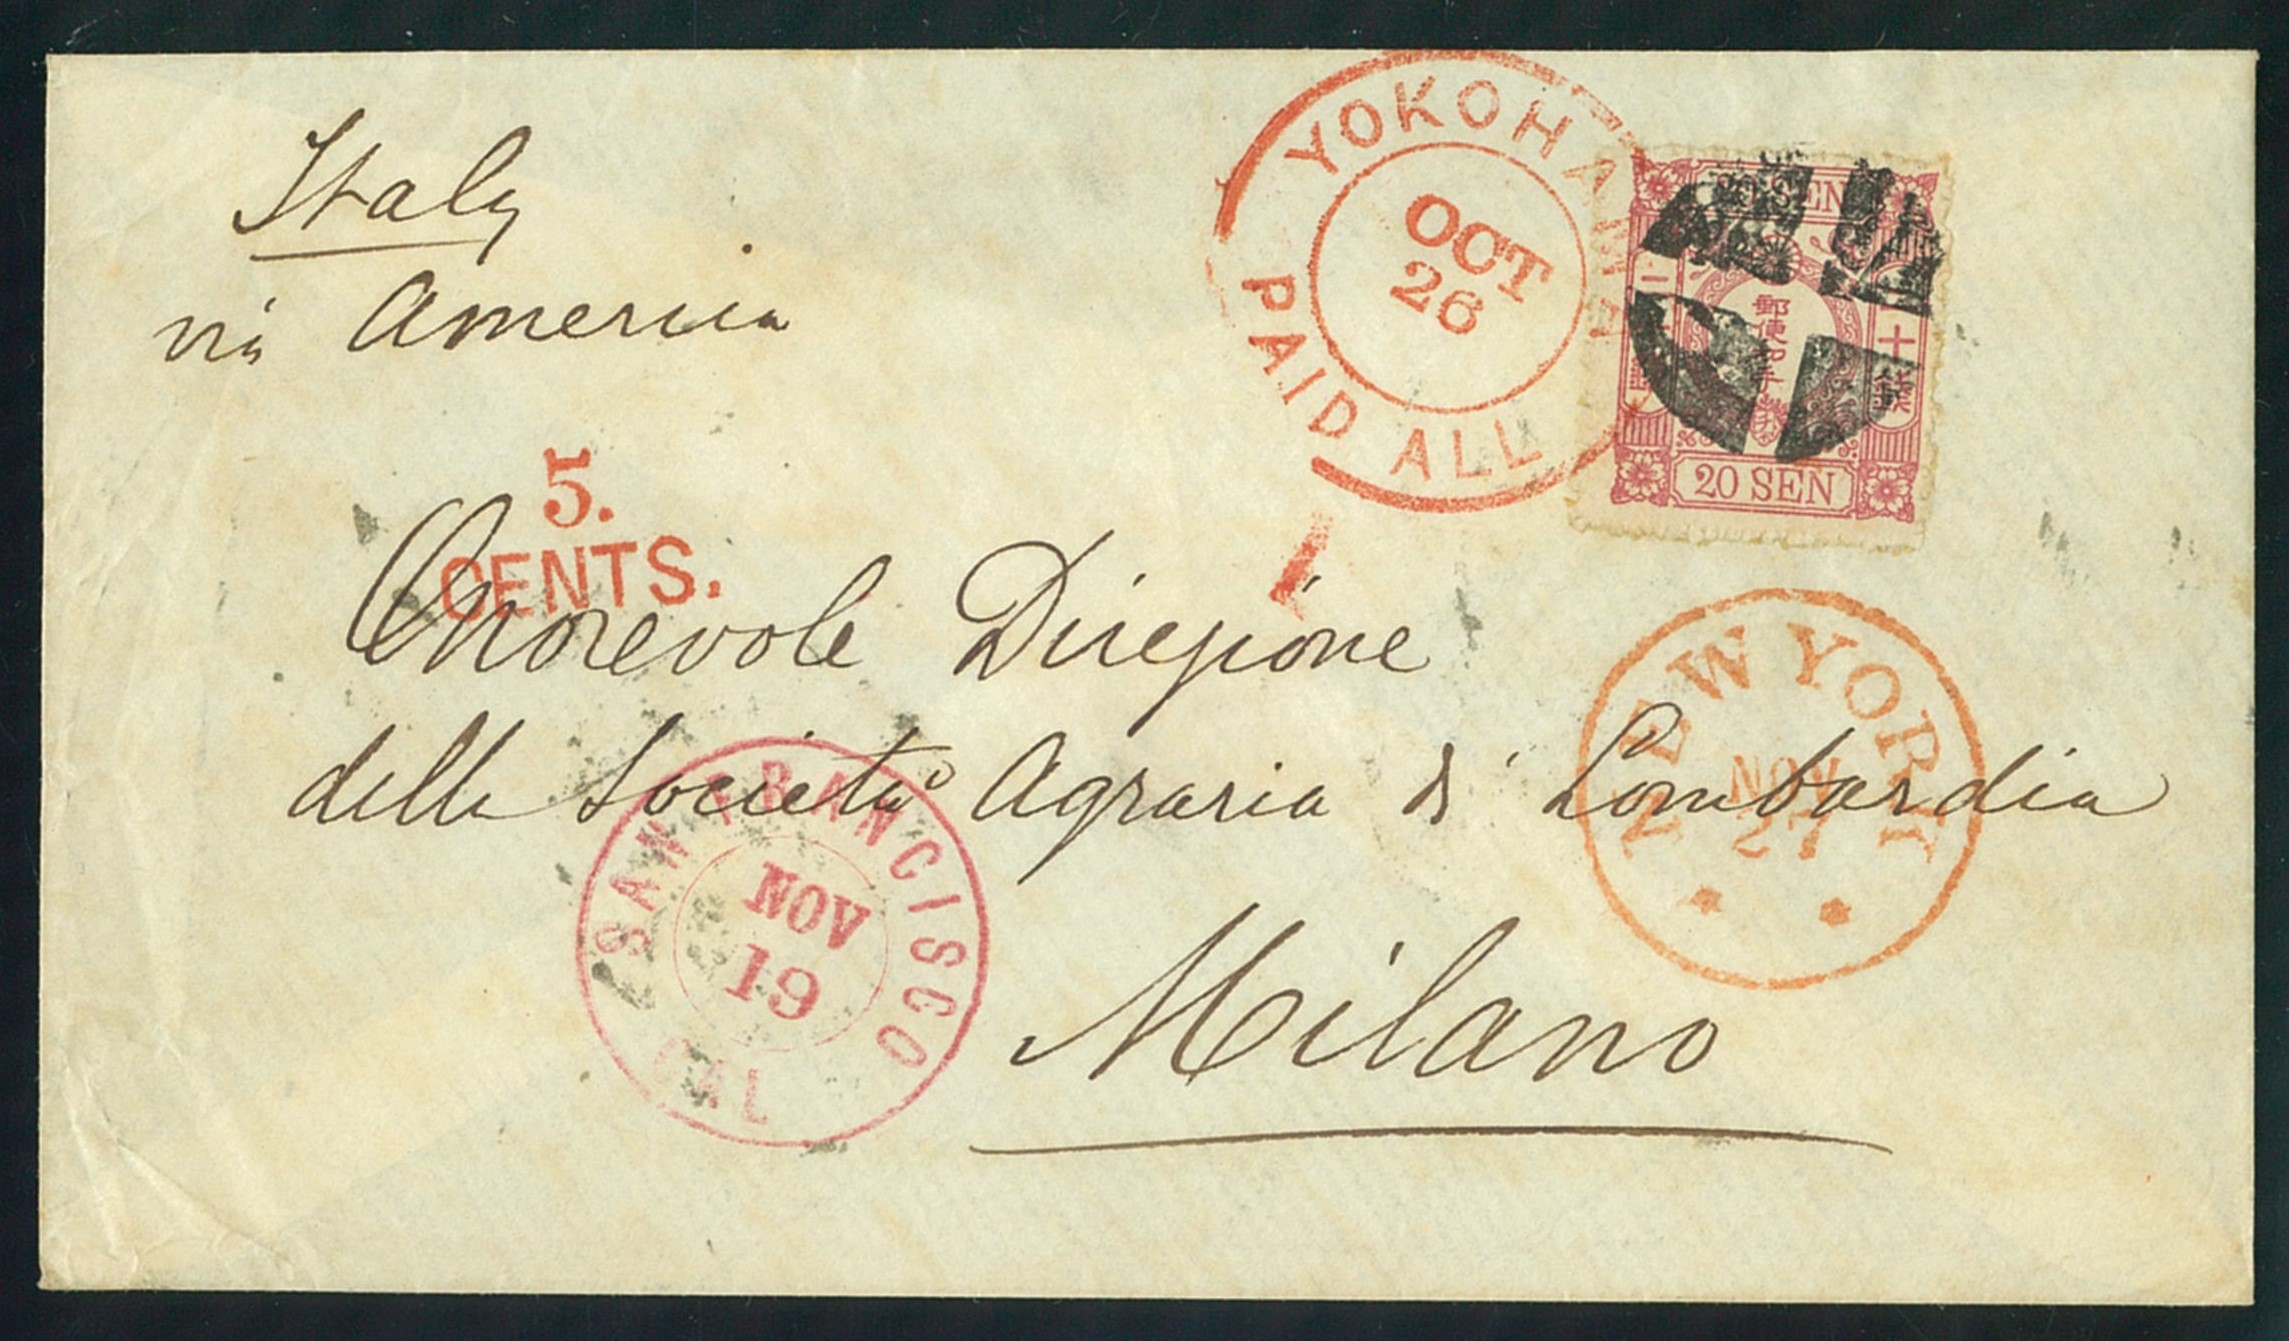 Italy
via America
YOKOHAMA
OCT
26
PAID ALL
SEN
二
十
錢
郵便印手
20 SEN
5.
CENTS.
Onorevole Direzione
della Società Agraria di Lombardia
Milano
NEW YORK
NOV
27
SAN FRANCISCO
NOV
19
CAL